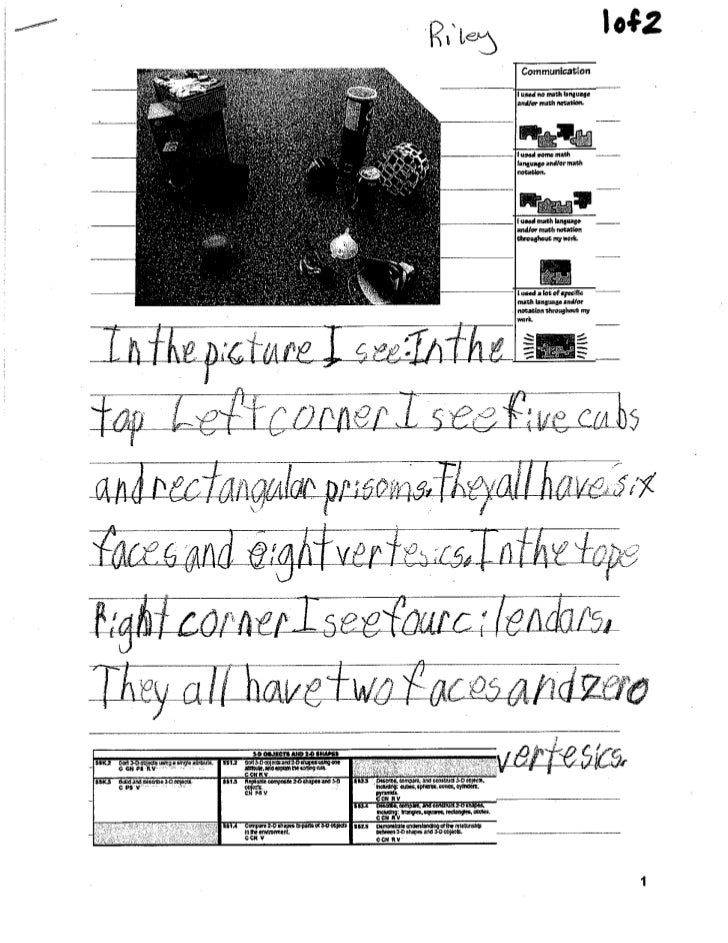 Riley
1 of 2
Communication
I used no math language
and/or math notation.
I used some math
language and/or math
notation.
I used math language
and/or math notation
throughout my work.
I used a lot of specific
math language and/or
notation throughout my
work.
In the picture I see: In the
top Left corner I see five cubs
and rectangular prisoms. They all have six
faces and eight vertesics. In the tope
Right corner I see four cilendars.
They all have two faces and zero
vertesics.
3-D OBJECTS AND 2-D SHAPES
SSK.2 Sort 3-D objects using a single attribute.
C CN PS R V
SS1.2 Sort 3-D objects and 2-D shapes using one
attribute, and explain the sorting rule.
C CN R V
SSK.3 Build and describe 3-D objects.
C PS V
SS1.3 Replicate composite 2-D shapes and 3-D
objects.
CN PS V
SS2.3 Describe, compare, and construct 3-D objects,
including: cubes, spheres, cones, cylinders,
pyramids.
C CN R V
SS2.4 Describe, compare, and construct 2-D shapes,
including: triangles, squares, rectangles, circles.
C CN R V
SS1.4 Compare 2-D shapes to parts of 3-D objects
in the environment.
C CN V
SS2.5 Demonstrate understanding of the relationship
between 2-D shapes and 3-D objects.
C CN R V
1